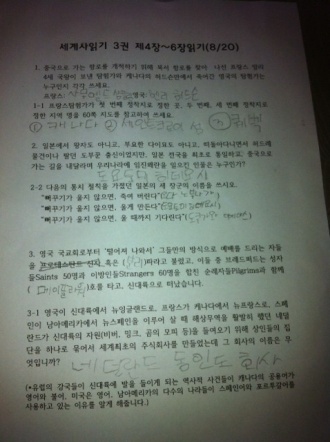 세계사읽기 3권 제4장~6장읽기(8/20)
1. 중국으로 가는 항로를 개척하기 위해 북서 항로를 찾아 나선 프랑스 왕의
4세 국왕이 보낸 탐험가와 캐나다의 허드슨만에서 죽어간 영국의 탐험가는
누구인지 각각 쓰세요.
프랑스: 영국: 헨리 허드슨
1-1 프랑스탐험가가 첫 번째 정착지로 정한 곳, 두 번째, 세 번째 정착지로
정한 지역 명을 60쪽 지도를 참고하여 쓰세요.
① 캐나다 ② 세인트 섬 ③ 퀘벡
2. 일본에서 왕자도 아니고, 부요한 다이묘도 아니고, 비틀어다니면서 허드레
물건이나 팔던 도부꾼 출신이었지만, 일본 전국을 최초로 통일하고, 중국으로
가는 길을 내달라며 우리나라에 임진왜란을 일으킨 인물은 누구인가?
도요토미 히데요시
2-2 다음의 통치 철학을 가졌던 일본의 세 장군의 이름을 쓰시오.
"뻐꾸기가 울지 않으면, 죽여 버린다"(오다 노부나가)
"뻐꾸기가 울지 않으면, 울게 만든다"(도요토미 히데요시)
"뻐꾸기가 울지 않으면, 울 때까지 기다린다"(도쿠가와 이에야스)
3. 영국 국교회로부터 '떨어져 나와서' 그들만의 방식으로 예배를 드리는 자들
을 혹은 ( )파라고 불렀고, 이들 중 브래드퍼드는 성자
들Saints 50명과 이방인들Strangers 60명을 합친 순례자들Pilgrims과 함께
(메이플라워)호를 타고, 신대륙으로 떠났습니다.
3-1 영국이 신대륙에서 뉴잉글랜드로, 프랑스가 캐나다에서 뉴프랑스로, 스페
인이 남아메리카에서 뉴스페인을 이루어 살 때 해상무역을 활발히 했던 네덜
란드가 신대륙의 자원(비버, 밍크, 곰의 모피 등)을 들여오기 위해 상인들의 집
단을 하나로 묶어서 세계최초의 주식회사를 만들었는데 그 회사의 이름은 무
엇입니까?
네덜란드 동인도 회사
(*유럽의 강국들이 신대륙에 발을 들이게 되는 역사적 사건들이 캐나다의 공용어가
영어와 불어, 미국은 영어, 남아메리카의 다수의 나라들이 스페인어와 포르투갈어를
사용하고 있는 이유를 알게 해줍니다.)